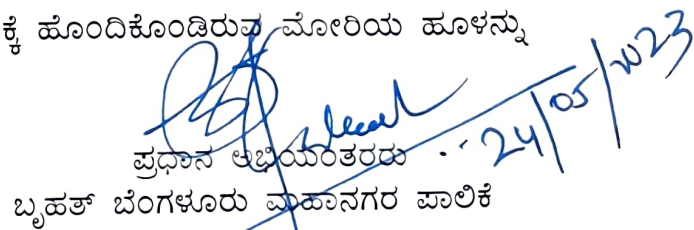 ಕ್ಕೆ ಹೊಂದಿಕೊಂಡಿರುವ ಮೋರಿಯ ಹೂಳನ್ನು
24/05/2023
ಪ್ರಧಾನ ಅಭಿಯಂತರರು
ಬೃಹತ್ ಬೆಂಗಳೂರು ಮಹಾನಗರ ಪಾಲಿಕೆ